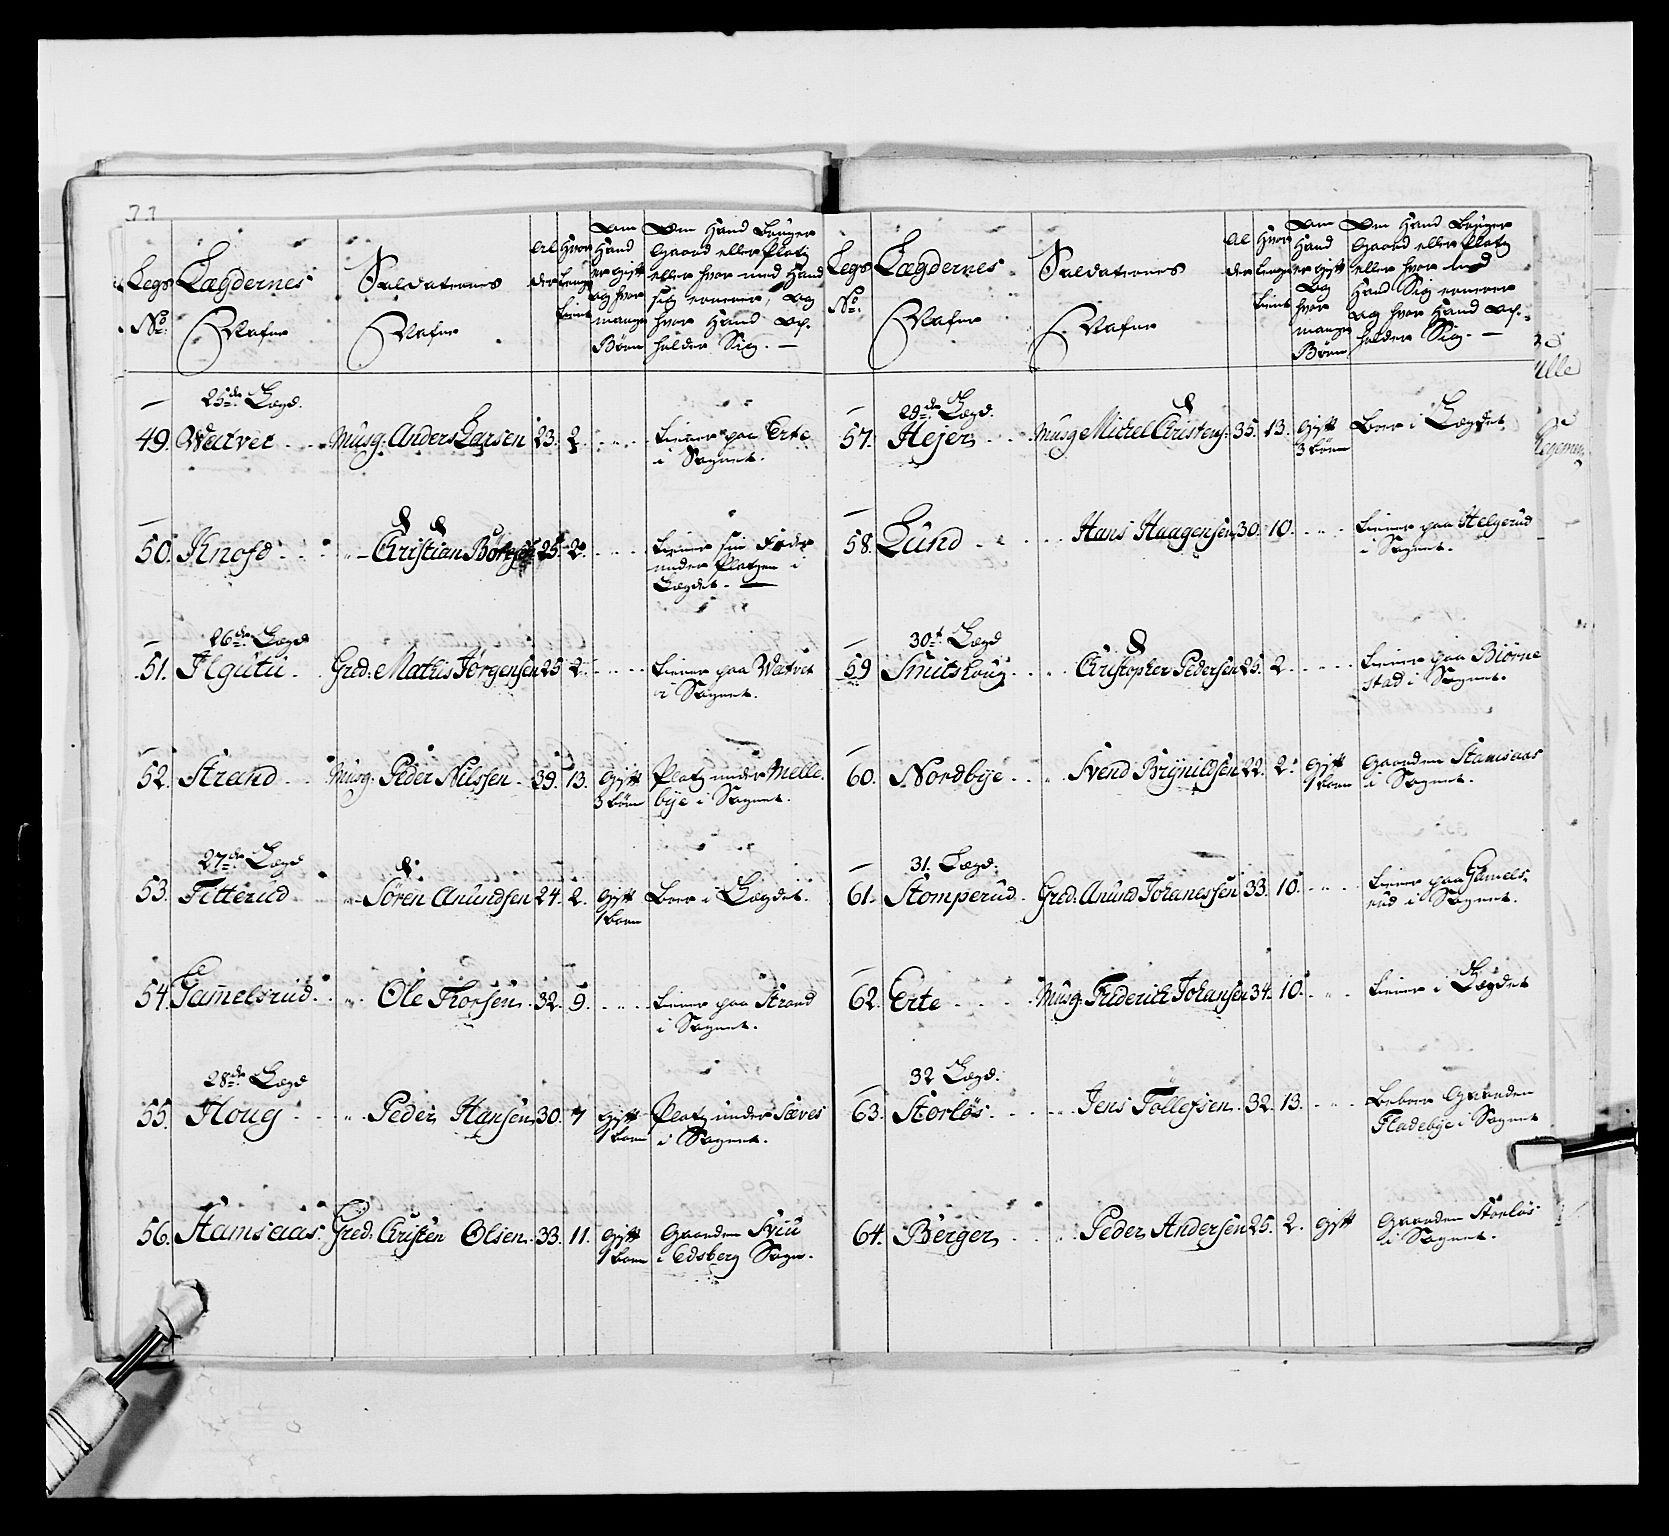 Legs No: Lægdernes Nafne Soldaternes Nafne Al der Hvor Lenge tient Om Hand er gift og hvor mange Børn Om Hand bruger Gaard eller Platz eller hvor med Hand sig ernerer, og hvor Hand op- holder Sig. —
25de Lægd.
49. Watvet Musq: Anders Larsen 23. 2. tiener paa Erte
i Sognet.
50. Knofd „ Christian 25. 2. tiener sin Fader
under Platzen i
Lægdet. —
26de Lægd
51. Gred: Mathis Jørgensen 25 2. tiener paa Watvet
i Sognet.
52. Strand Musq: Peder Nilssen 39. 13. gift
3 børn Platz under Melle-
bye i Sognet.
27de Lægd
53. Titterud „ Søren Anundsen 24. 2. gift
1 barn Boer i Lægdet.
54. Gamelsrud „ Ole Thorsen 32. 9. tiener paa Strand
i Sognet.
28de Lægd
55. Houg „ Peder Hansen 30. 7 gift
1 barn Platz under Sæves
i Sognet.
56. Hamsaas Gred: Christen Olsen 33. 11. gift
1 barn Gaarden
i Edsberg Sogn.
Legs No: Lægdernes Nafne Soldaternes Nafne Al der Hvor Lenge tient Om Hand er gift og hvor mange Børn Om Hand bruger Gaard eller Platz eller hvor med Hand Sig ernerer og hvor Hand op- holder Sig. —
29de Lægd.
57. Hejer Musq Michel Christens: 35. 13. gift
3 børn Boer i Lægdet
58. Lund Hans Haagensen 30. 10. tiener paa Helgerud
i Sognet.
30t Lægd
59 Smitshoug Christopher Pedersen 25. 2. tiener paa Biørne
stad i Sognet.
60. Nordbye „ Svend Brynildsen 22. 2. gift
1 barn Gaarden Hamsaas
i Sognet.
31. Lægd.
61. Stomperud Gred: Anund Johanessen 33. 10. tiener paa Gamels-
rud i Sognet.
62. Erte Musq: Friderich Johansen 34. 10. tiener i Lægdet
32 Lægd.
63. Storløs „ Jens Tollefsen 32. 13. beboer Gaarden
Fladebye i Sognet
64. Berger „ Peder Andersen 25. 2. gift Gaarden Storløs
i Sognet.